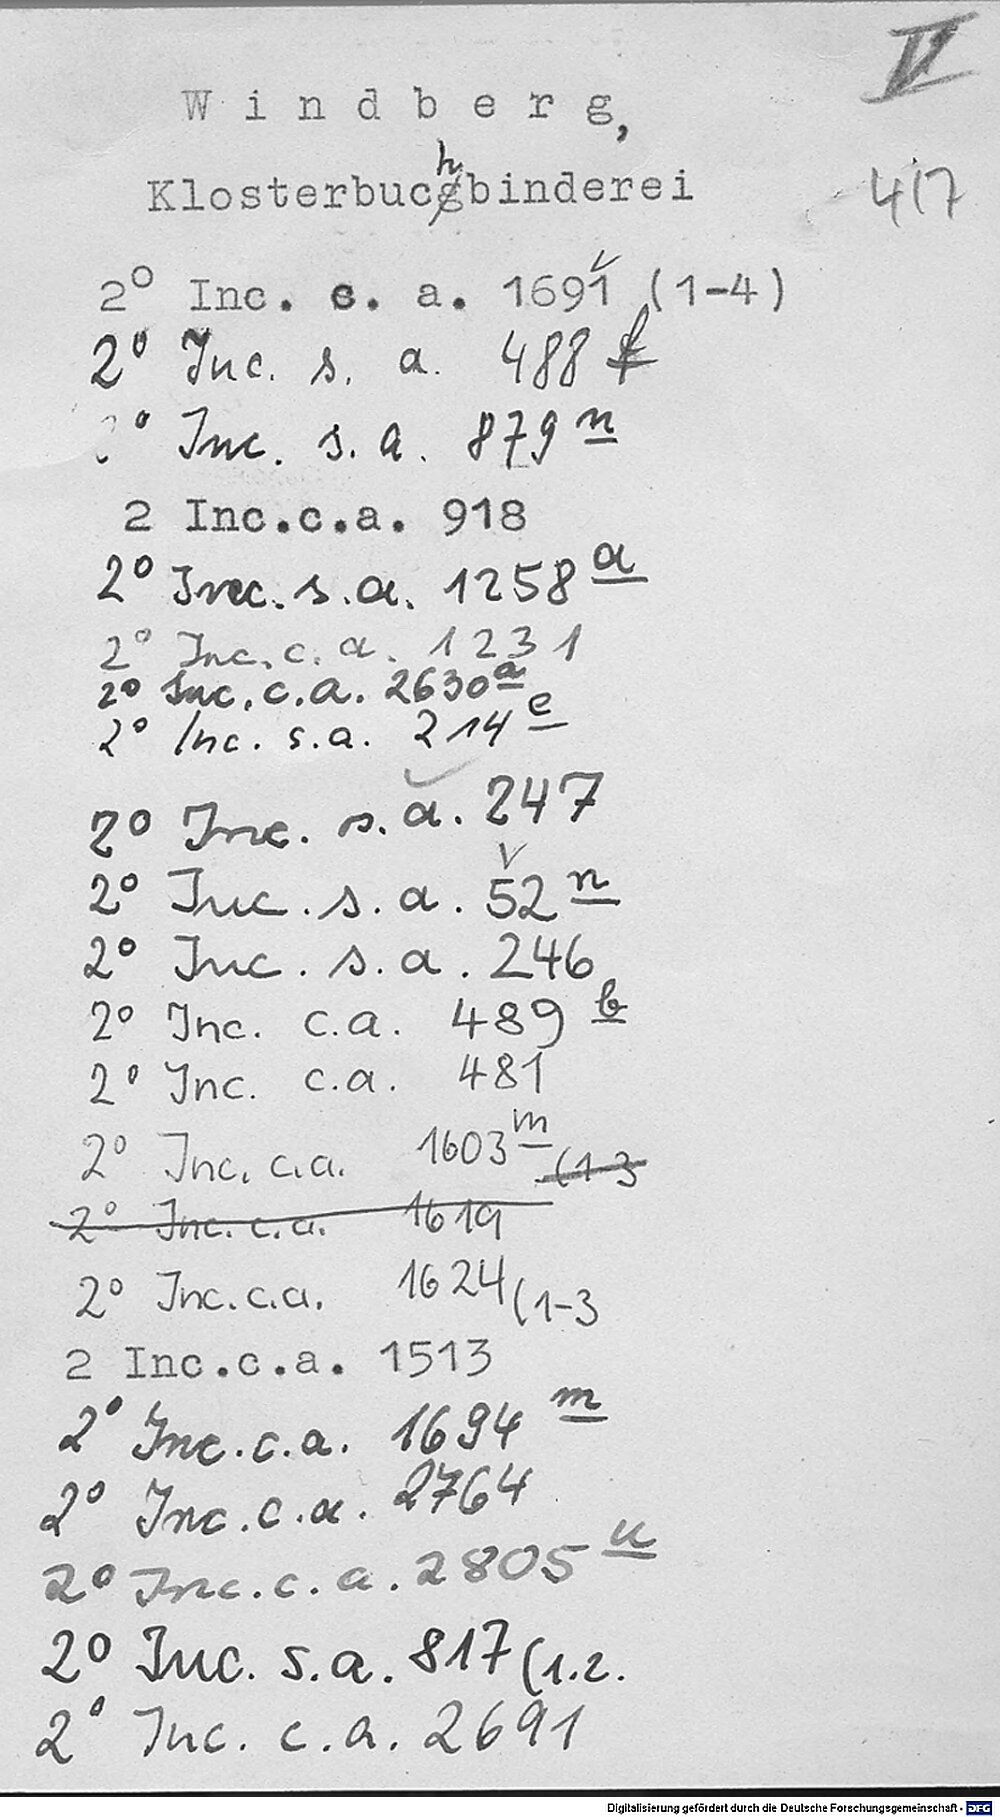 V
W i n d b e r g,
Klosterbuchbinderei
417
2° Inc. c. a. 1691 (1-4)
2° Inc. s. a. 488 f
2° Inc. s. a. 879 n
2 Inc.c.a. 918
2° Inc. s.a. 1258 a
2° Inc. c. a. 1231
2° Inc. c.a. 2630 a
2° Inc. s.a. 214 e
2° Inc. s.a. 247
2° Inc. s.a. 52 n
2° Inc. s.a. 246
2° Inc. c.a. 489 b
2° Inc. c.a. 481
2° Inc. c.a. 1603 m (1-3
2° Inc. c.a. 1619
2° Inc. c.a. 1624 (1-3
2 Inc.c.a. 1513
2° Inc. c.a. 1694 m
2° Inc. c.a. 2764
2° Inc. c.a. 2805 u
2° Inc. s.a. 817 (1.2.
2° Inc. c.a. 2691
Digitalisierung gefördert durch die Deutsche Forschungsgemeinschaft - DFG